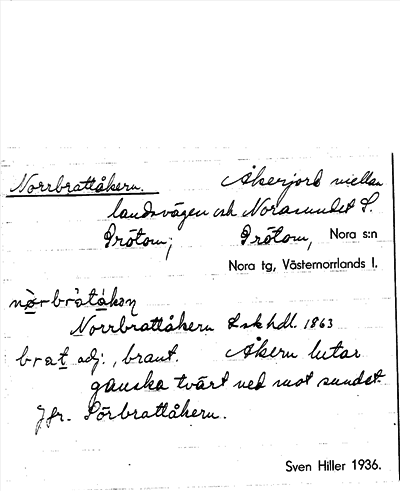 Norrbrattåkern. Åkerjord mellan
landsvägen och Norasundet S.
Prötom; Prötom, Nora s:n
Nora tg, Västernorrlands l.
nòrbràtákan
Norrbrattåkern Lskhdl. 1863
brat adj., brant. Åkern lutar
ganska tvärt ned mot sundet.
Jfr. Sörbrattåkern.
Sven Hiller 1936.